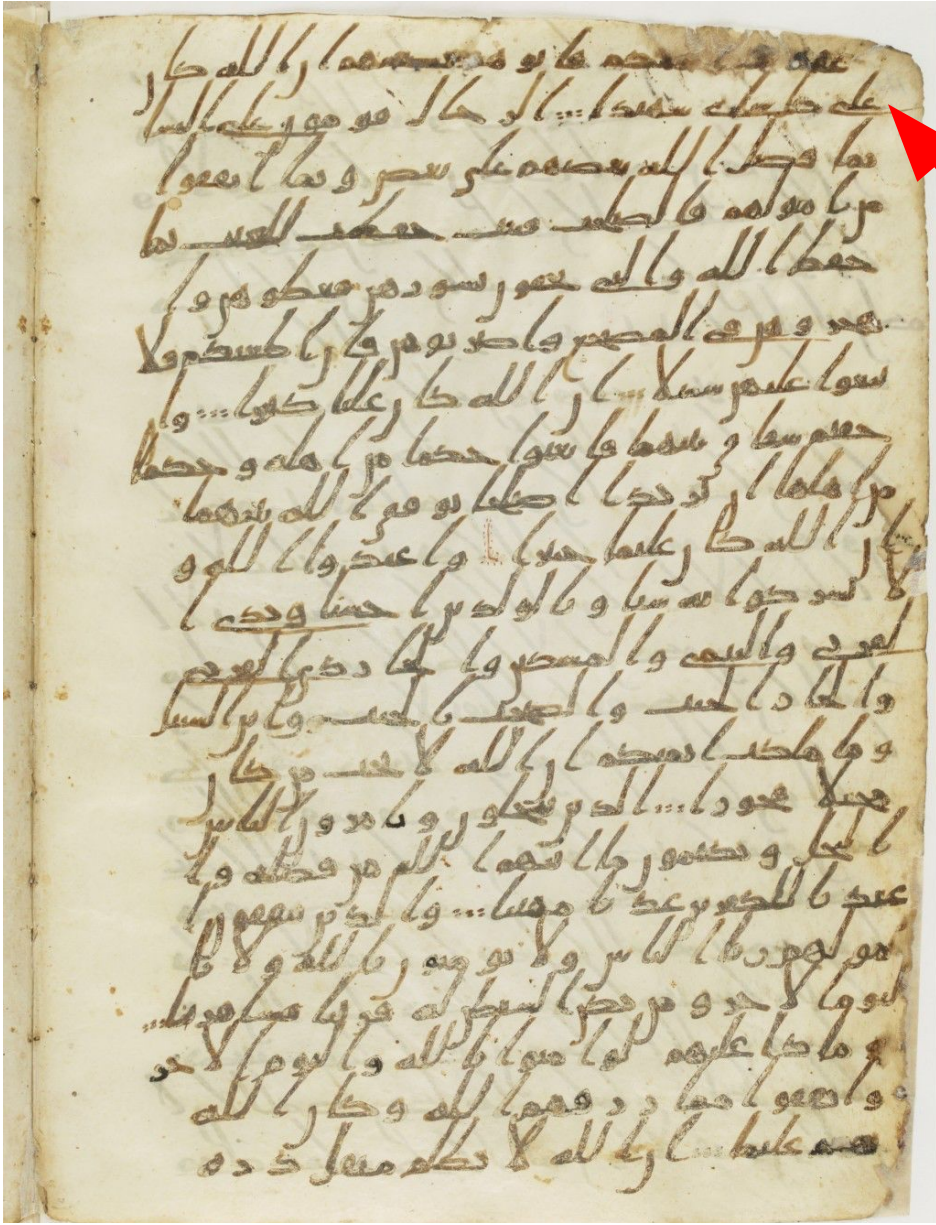 عقدت ايمنكم فاتوهم نصيبهم ان الله كان
على كل شاى شهيدا الرجال قومون على النسا
بما فضل الله بعضهم على بعض وبما انفقوا
من امولهم فالصلحت قنتت حفظت للغيب بما
حفظ الله والتى تخفون نشوزهن فعظوهن وا
هجروهن فى المضجع واضربوهن فان اطعنكم ولا
تبغوا عليهن سبيلا ان الله كان عليا كبيرا وان
خفتم شقق بينهما فابعثوا حكما من اهله وحكما
من اهلها ان يريدا اصلحا يوفق الله بينهما
ان الله كان عليما خبيرا واعبدوا الله و
لا تشركوا به شيا وبالولدين احسنا وبذى ا
لقربى واليتمى والمسكين والجار ذى القربى
والجار الجنب والصحب بالجنب وابن السبيل
وما ملكت ايمنكم ان الله لا يحب من كان
مختلا فخورا الذين يبخلون ويامرون الناس
بالبخل ويكتمون ما اتيهم الله من فضله وا
عتدنا للكفرين عذابا مهينا والذين ينفقون ا
مولهم ريا الناس ولا يومنون بالله ولا با
ليوم الاخر ومن يكن الشيطن له قرينا فسا قرينا
وماذا عليهم لو امنوا بالله واليوم الاخر
وانفقوا مما رزقهم الله وكان الله
بهم عليما ان الله لا يظلم مثقل ذره